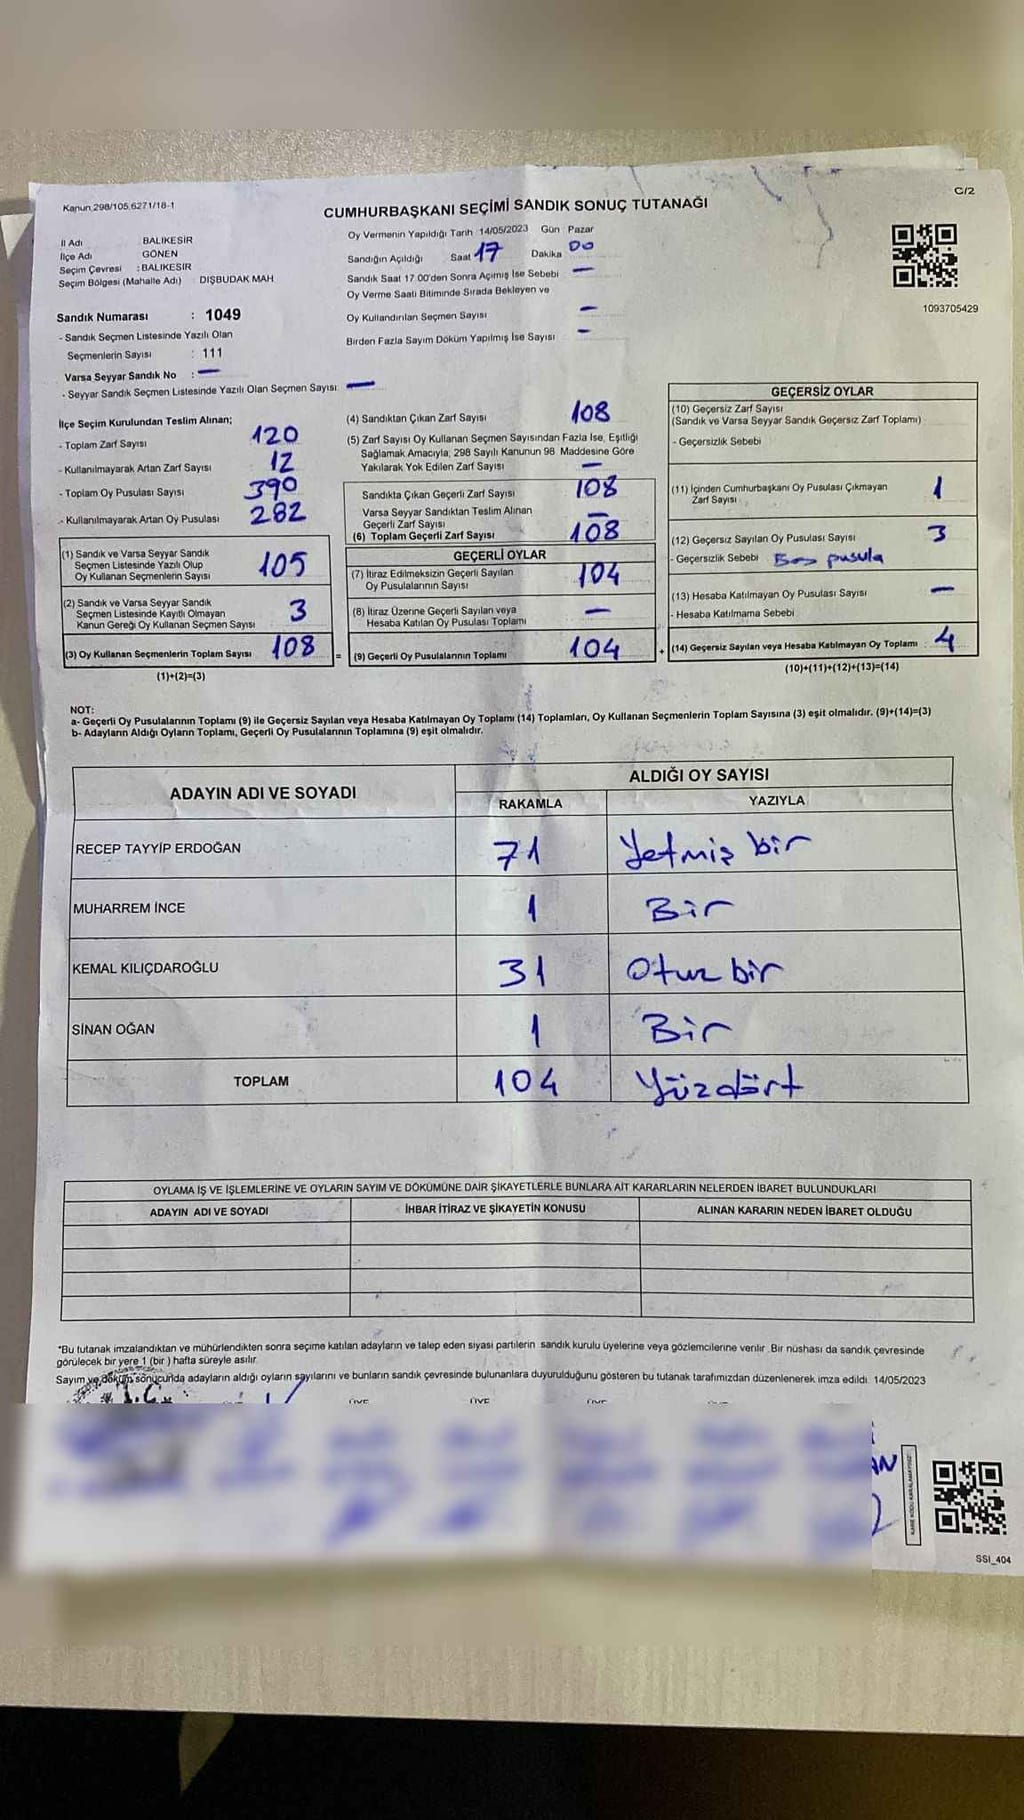 Kanun 298/105,6271/18-1
C/2
CUMHURBAŞKANI SEÇİMİ SANDIK SONUÇ TUTANAĞI
İl Adı BALIKESİR
İlçe Adı GÖNEN
Seçim Çevresi : BALIKESİR
Seçim Bölgesi (Mahalle Adı) DIŞBUDAK MAH
Oy Vermenin Yapıldığı Tarih 14/05/2023 Gün Pazar
Sandığın Açıldığı Saat 17 Dakika 00
Sandık Saat 17.00'den Sonra Açımış İse Sebebi —
Oy Verme Saati Bitiminde Sırada Bekleyen ve
Oy Kullandırılan Seçmen Sayısı —
Birden Fazla Sayım Döküm Yapılmış İse Sayısı —
1093705429
Sandık Numarası : 1049
- Sandık Seçmen Listesinde Yazılı Olan
Seçmenlerin Sayısı : 111
Varsa Seyyar Sandık No : —
- Seyyar Sandık Seçmen Listesinde Yazılı Olan Seçmen Sayısı —
İlçe Seçim Kurulundan Teslim Alınan;
- Toplam Zarf Sayısı 120
- Kullanılmayarak Artan Zarf Sayısı 12
- Toplam Oy Pusulası Sayısı 390
- Kullanılmayarak Artan Oy Pusulası 282
(1) Sandık ve Varsa Seyyar Sandık
Seçmen Listesinde Yazılı Olup
Oy Kullanan Seçmenlerin Sayısı 105
(2) Sandık ve Varsa Seyyar Sandık
Seçmen Listesinde Kayıtlı Olmayan
Kanun Gereği Oy Kullanan Seçmen Sayısı 3
(3) Oy Kullanan Seçmenlerin Toplam Sayısı 108
(1)+(2)=(3)
(4) Sandıktan Çıkan Zarf Sayısı 108
(5) Zarf Sayısı Oy Kullanan Seçmen Sayısından Fazla İse, Eşitliği
Sağlamak Amacıyla, 298 Sayılı Kanunun 98. Maddesine Göre
Yakılarak Yok Edilen Zarf Sayısı —
Sandıkta Çıkan Geçerli Zarf Sayısı 108
Varsa Seyyar Sandıktan Teslim Alınan
Geçerli Zarf Sayısı —
(6) Toplam Geçerli Zarf Sayısı 108
GEÇERLİ OYLAR
(7) İtiraz Edilmeksizin Geçerli Sayılan
Oy Pusulalarının Sayısı 104
(8) İtiraz Üzerine Geçerli Sayılan veya
Hesaba Katılan Oy Pusulası Toplamı —
= (9) Geçerli Oy Pusulalarının Toplamı 104
GEÇERSİZ OYLAR
(10) Geçersiz Zarf Sayısı
(Sandık ve Varsa Seyyar Sandık Geçersiz Zarf Toplamı)
- Geçersizlik Sebebi
(11) İçinden Cumhurbaşkanı Oy Pusulası Çıkmayan
Zarf Sayısı 1
(12) Geçersiz Sayılan Oy Pusulası Sayısı 3
- Geçersizlik Sebebi Boş pusula
(13) Hesaba Katılmayan Oy Pusulası Sayısı —
- Hesaba Katılmama Sebebi
+ (14) Geçersiz Sayılan veya Hesaba Katılmayan Oy Toplamı 4
(10)+(11)+(12)+(13)=(14)
NOT:
a- Geçerli Oy Pusulalarının Toplamı (9) ile Geçersiz Sayılan veya Hesaba Katılmayan Oy Toplamı (14) Toplamları, Oy Kullanan Seçmenlerin Toplam Sayısına (3) eşit olmalıdır. (9)+(14)=(3)
b- Adayların Aldığı Oyların Toplamı, Geçerli Oy Pusulalarının Toplamına (9) eşit olmalıdır.
ADAYIN ADI VE SOYADI ALDIĞI OY SAYISI
RAKAMLA YAZIYLA
RECEP TAYYİP ERDOĞAN 71 Yetmiş bir
MUHARREM İNCE 1 Bir
KEMAL KILIÇDAROĞLU 31 Otuz bir
SİNAN OĞAN 1 Bir
TOPLAM 104 Yüzdört
OYLAMA İŞ VE İŞLEMLERİNE VE OYLARIN SAYIM VE DÖKÜMÜNE DAİR ŞİKAYETLERLE BUNLARA AİT KARARLARIN NELERDEN İBARET BULUNDUKLARI
ADAYIN ADI VE SOYADI İHBAR İTİRAZ VE ŞİKAYETİN KONUSU ALINAN KARARIN NEDEN İBARET OLDUĞU
*Bu tutanak imzalandıktan ve mühürlendikten sonra seçime katılan adayların ve talep eden siyasi partilerin sandık kurulu üyelerine veya gözlemcilerine verilir. Bir nüshası da sandık çevresinde
görülecek bir yere 1 (bir) hafta süreyle asılır.
Sayım ve döküm sonucunda adayların aldığı oyların sayılarını ve bunların sandık çevresinde bulunanlara duyurulduğunu gösteren bu tutanak tarafımızdan düzenlenerek imza edildi. 14/05/2023
T.C.
ÜYE ÜYE ÜYE
AN
SSI_404